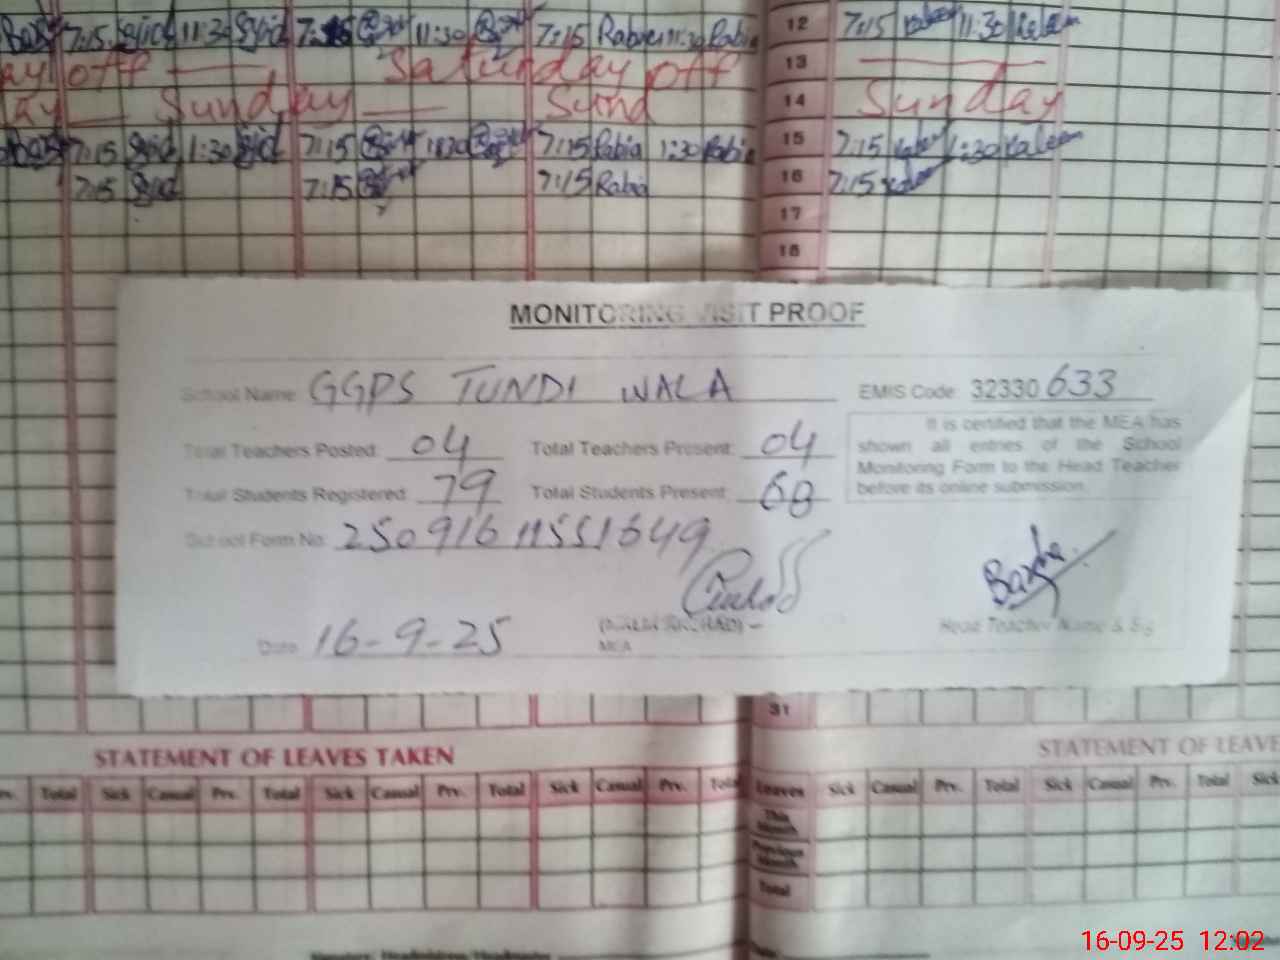 7:15 11:30 7:15 11:30 7:15 Rabia 11:30 Rabia 12 7:15 11:30 Kaleem
ay off Saturday off 13
ay Sunday Sund 14 Sunday
7:15 1:30 7:15 1130 7:15 Rabia 1:30 Rabia 15 7:15 1:30 Kaleem
7:15 7:15 7:15 Rabia 16 7:15
17
18
MONITORING VISIT PROOF
School Name: GGPS TUNDI WALA EMIS Code: 32330 633
Total Teachers Posted: 04 Total Teachers Present: 04
Total Students Registered: 79 Total Students Present: 68
It is certified that the MEA has
shown all entries of the School
Monitoring Form to the Head Teacher
before its online submission.
School Form No: 250916 11551649
Date: 16-9-25
MEA
Head Teacher Name & Sig
31
STATEMENT OF LEAVES TAKEN STATEMENT OF LEAVE
Prv. Total Sick Casual Prv. Total Sick Casual Prv. Total Sick Casual Prv. Total Leaves Sick Casual Prv. Total Sick Casual Prv. Total Sick
This Month
Previous Month
Total
16-09-25 12:02